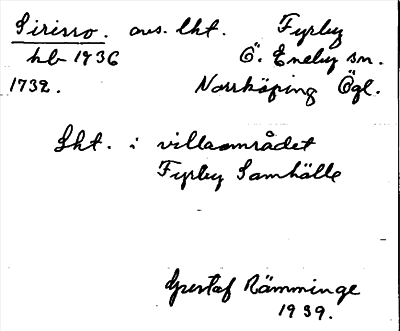 Sirisro. avs. lht. Fyrby
hb 1736 Ö. Eneby sn.
1732. Norrköping Ögl.
Lht. i villaområdet
Fyrby Samhälle
Gustaf Rämminge
1939.